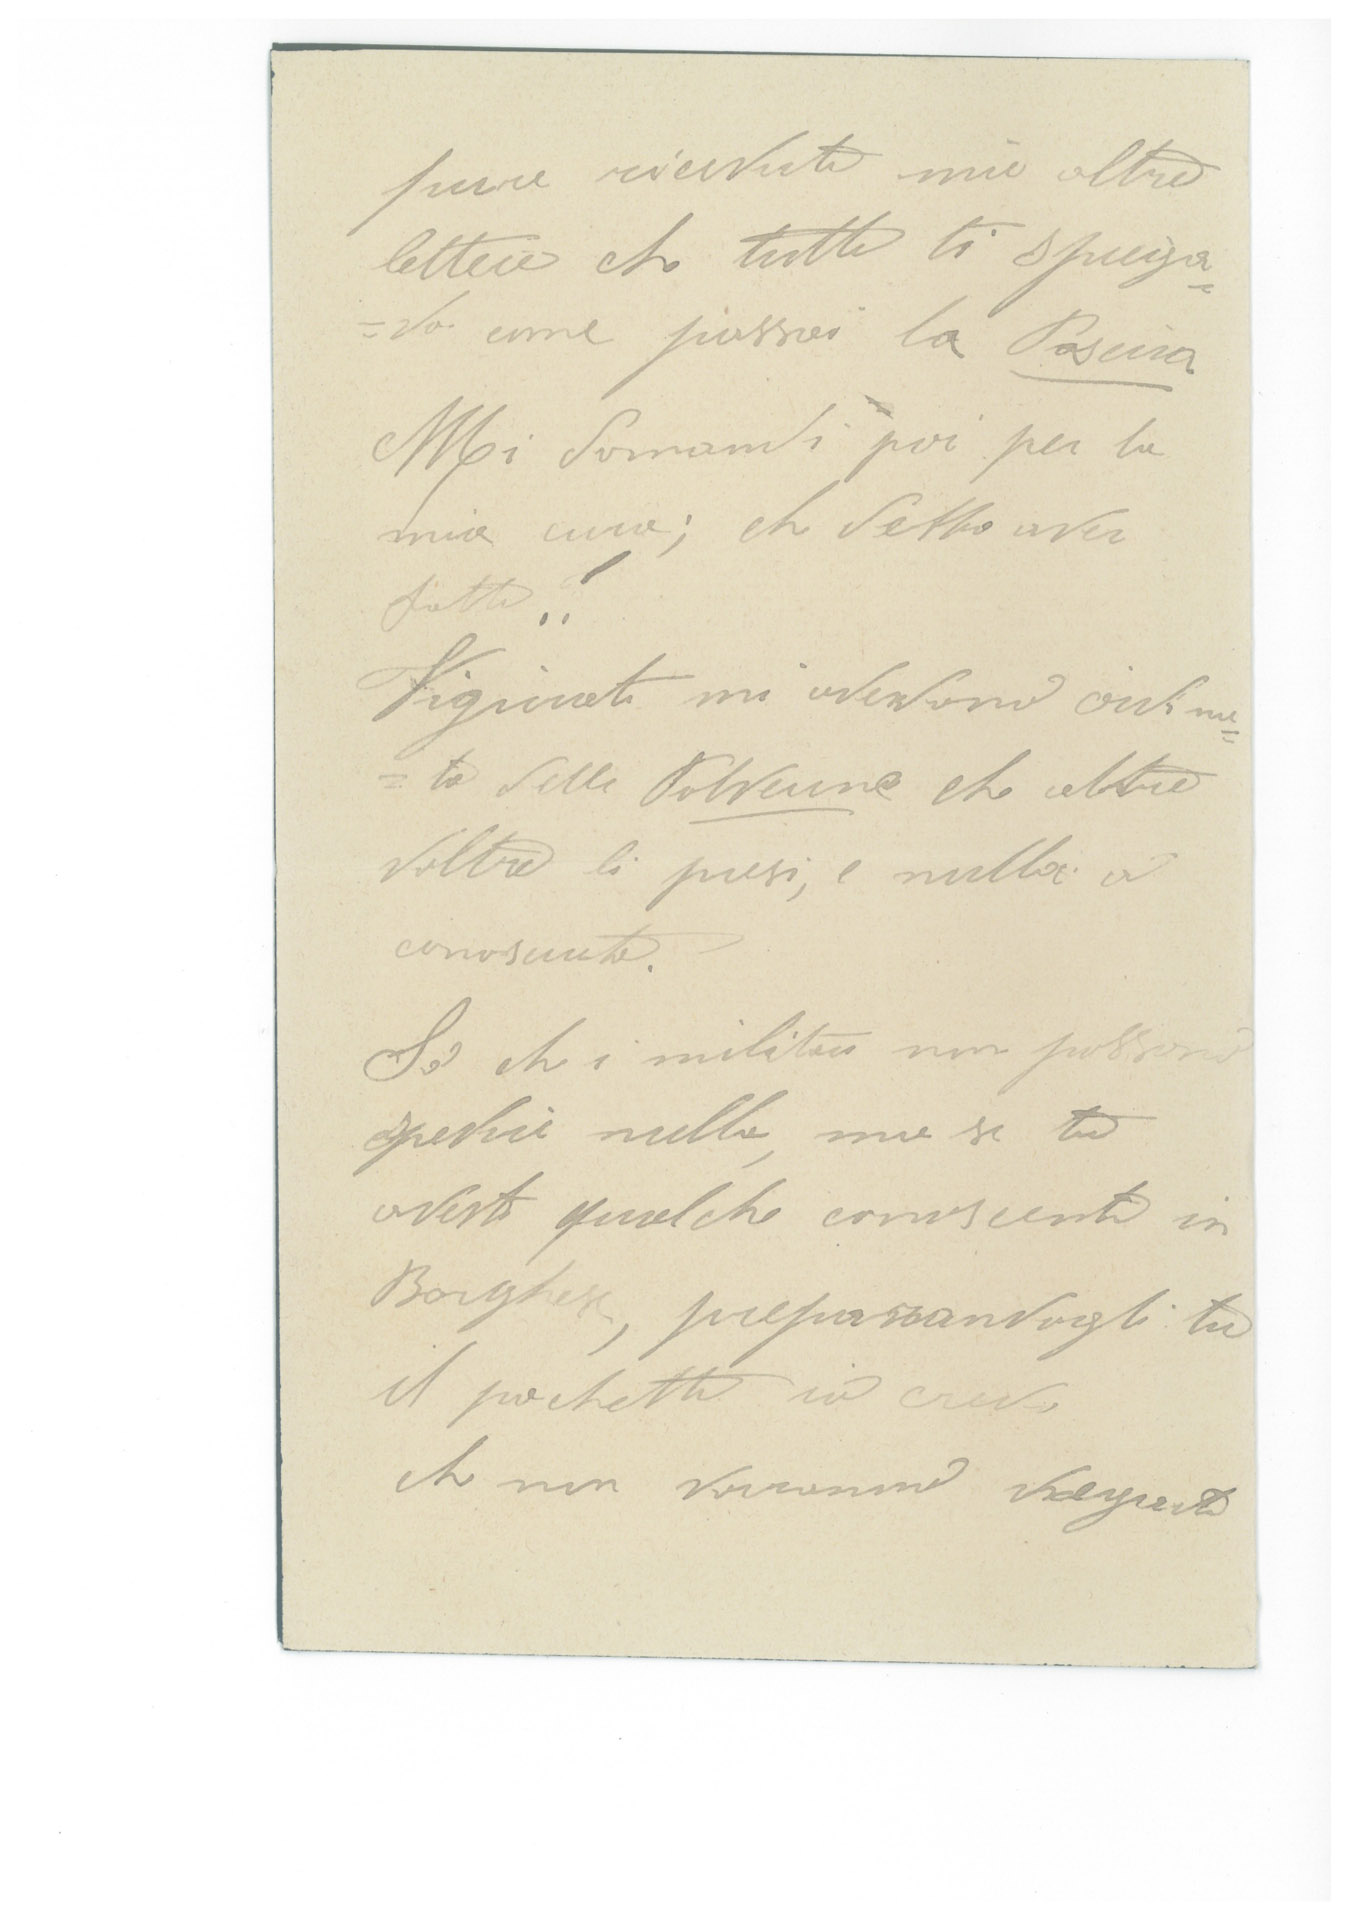 pure ricevute mie altre
lettere che tutte ti spiega=
=vo come passai la Pasciva
Mi domandi poi per la
mia cura; che debbo aver
fatto..!
Figurati mi avevano ordina=
=to delle Polverine che altre
voltre li presi, e nulla ò
conosciuto.
So che i militari non possono
spedire nulla, ma se tu
avesti qualche conoscente in
Borghese, preparandogli tu
il pachetto io credo
che non vorranno